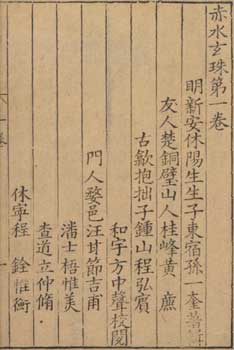 赤水玄珠第一卷
明新安休陽生生子東宿孫一奎著
友人楚銅璧山人桂峰黃　廉
古歙抱拙子鍾山程弘賓
和宇方中聲校閱
門人婺邑汪甘節吉甫
潘士梧惟美
查道立仲脩
休寧程　銓惟衡